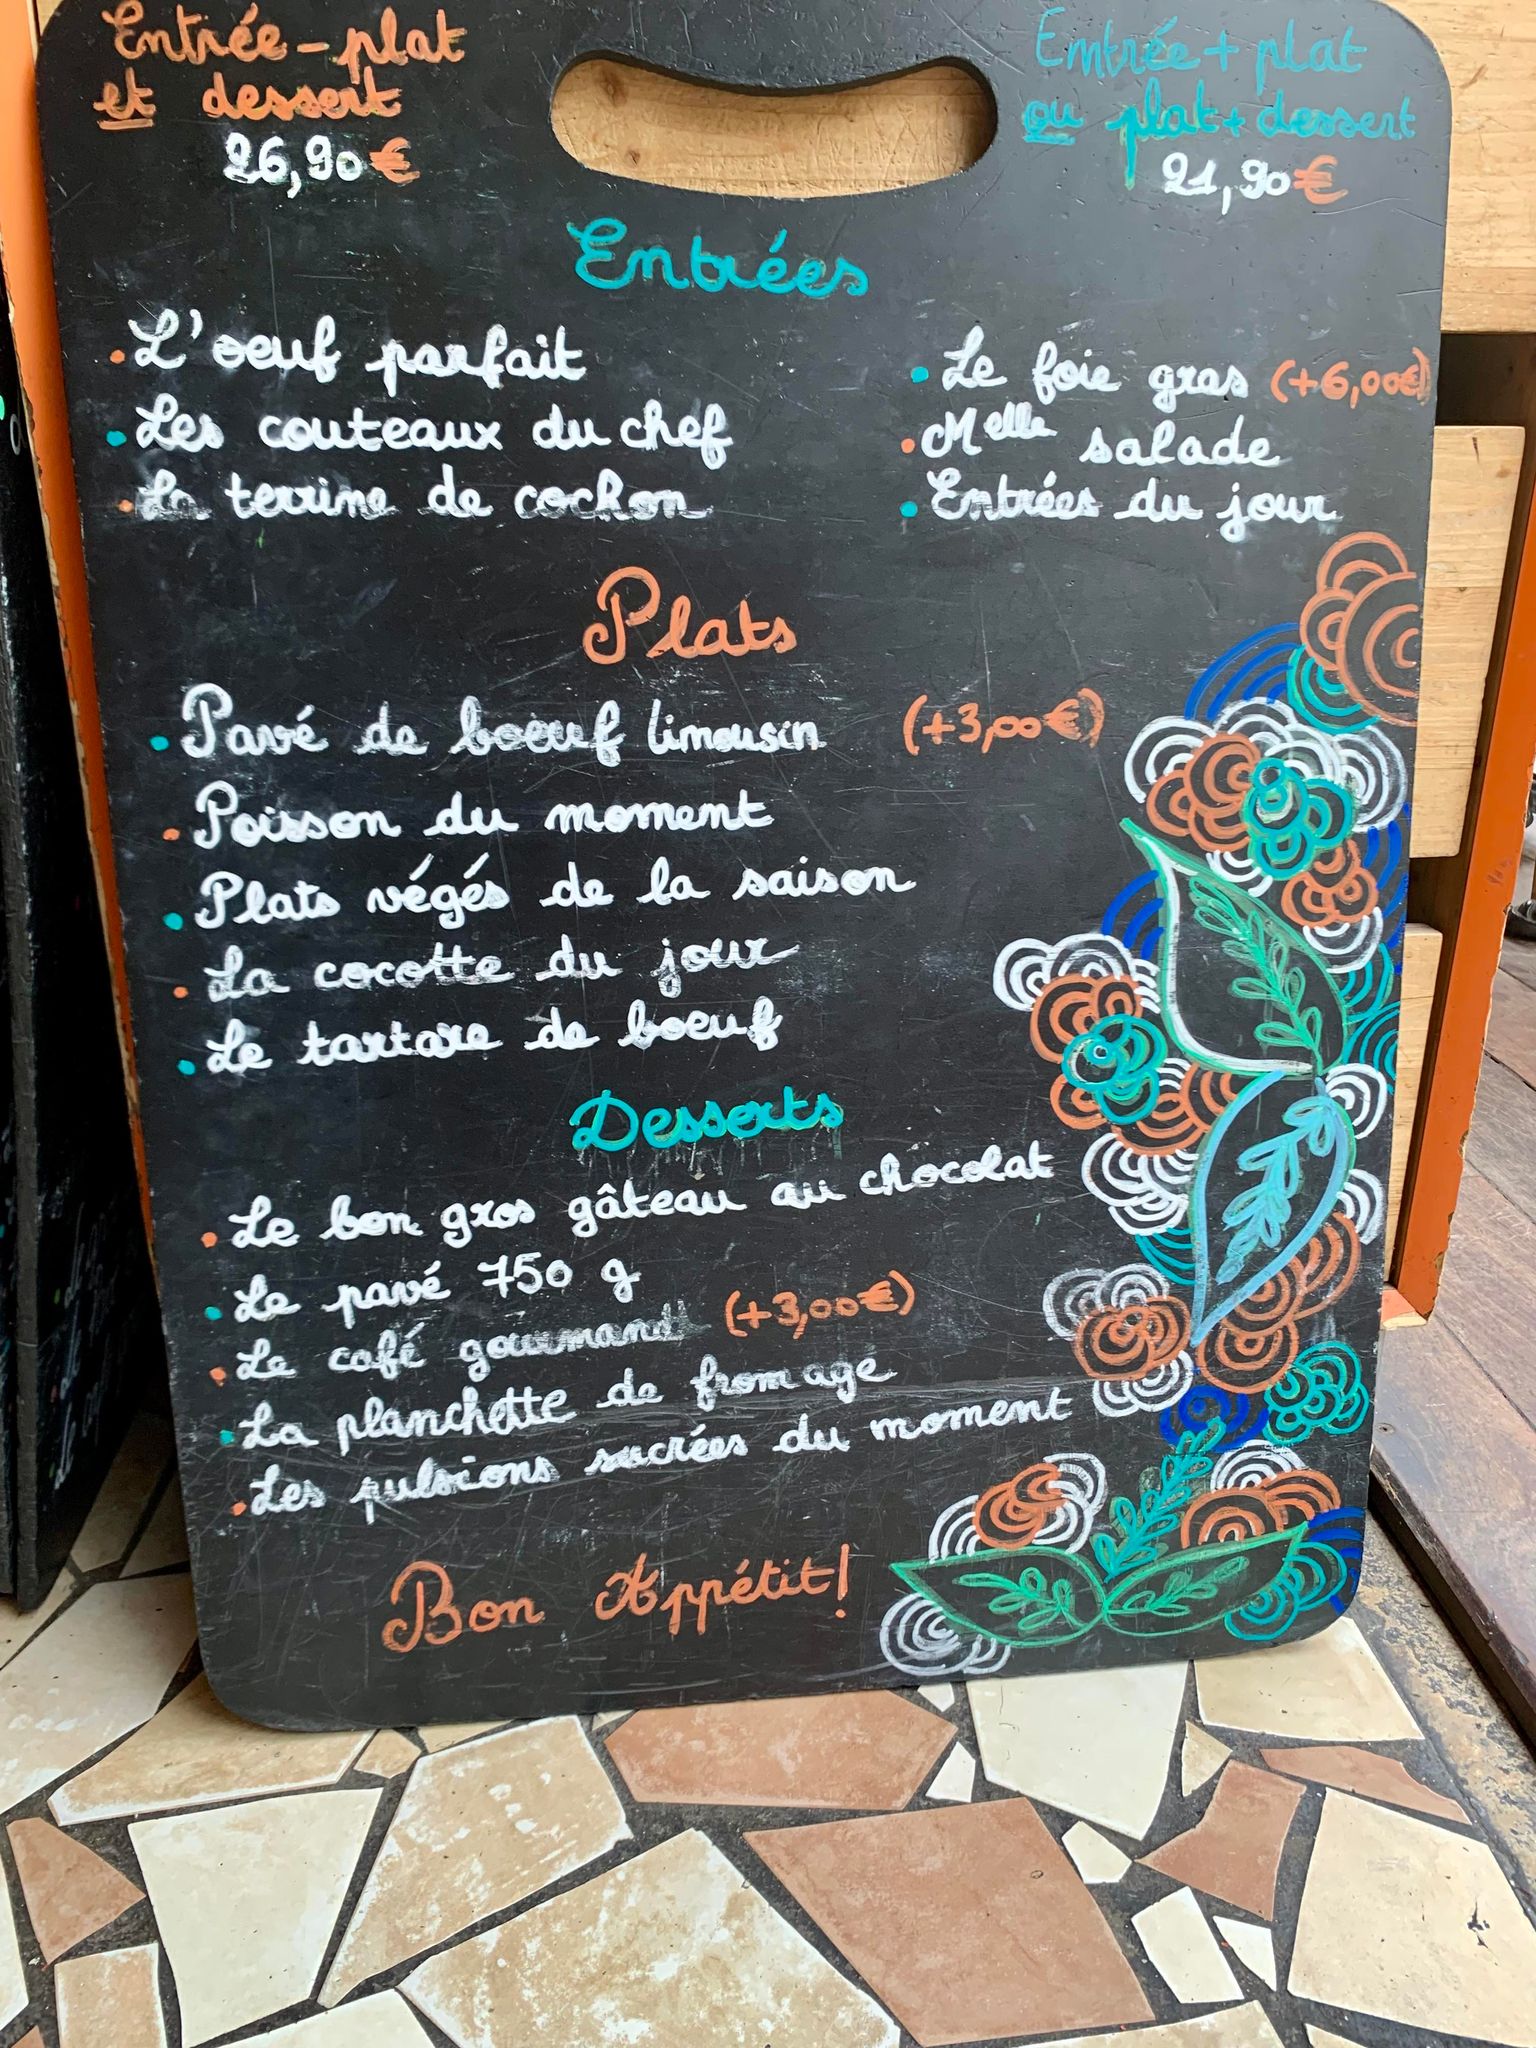 Entrée - plat
et dessert
26,90 €
Entrée + plat
ou plat + dessert
21,90 €
Entrées
L'oeuf parfait
Les couteaux du chef
La terrine de cochon
Le foie gras (+6,00€)
Melle salade
Entrées du jour
Plats
Pavé de boeuf limousin (+3,00€)
Poisson du moment
Plats végés de la saison
La cocotte du jour
Le tartare de boeuf
Desserts
Le bon gros gâteau au chocolat
Le pavé 750 g
Le café gourmand (+3,00€)
La planchette de fromage
Les pulsions sucrées du moment
Bon Appétit!